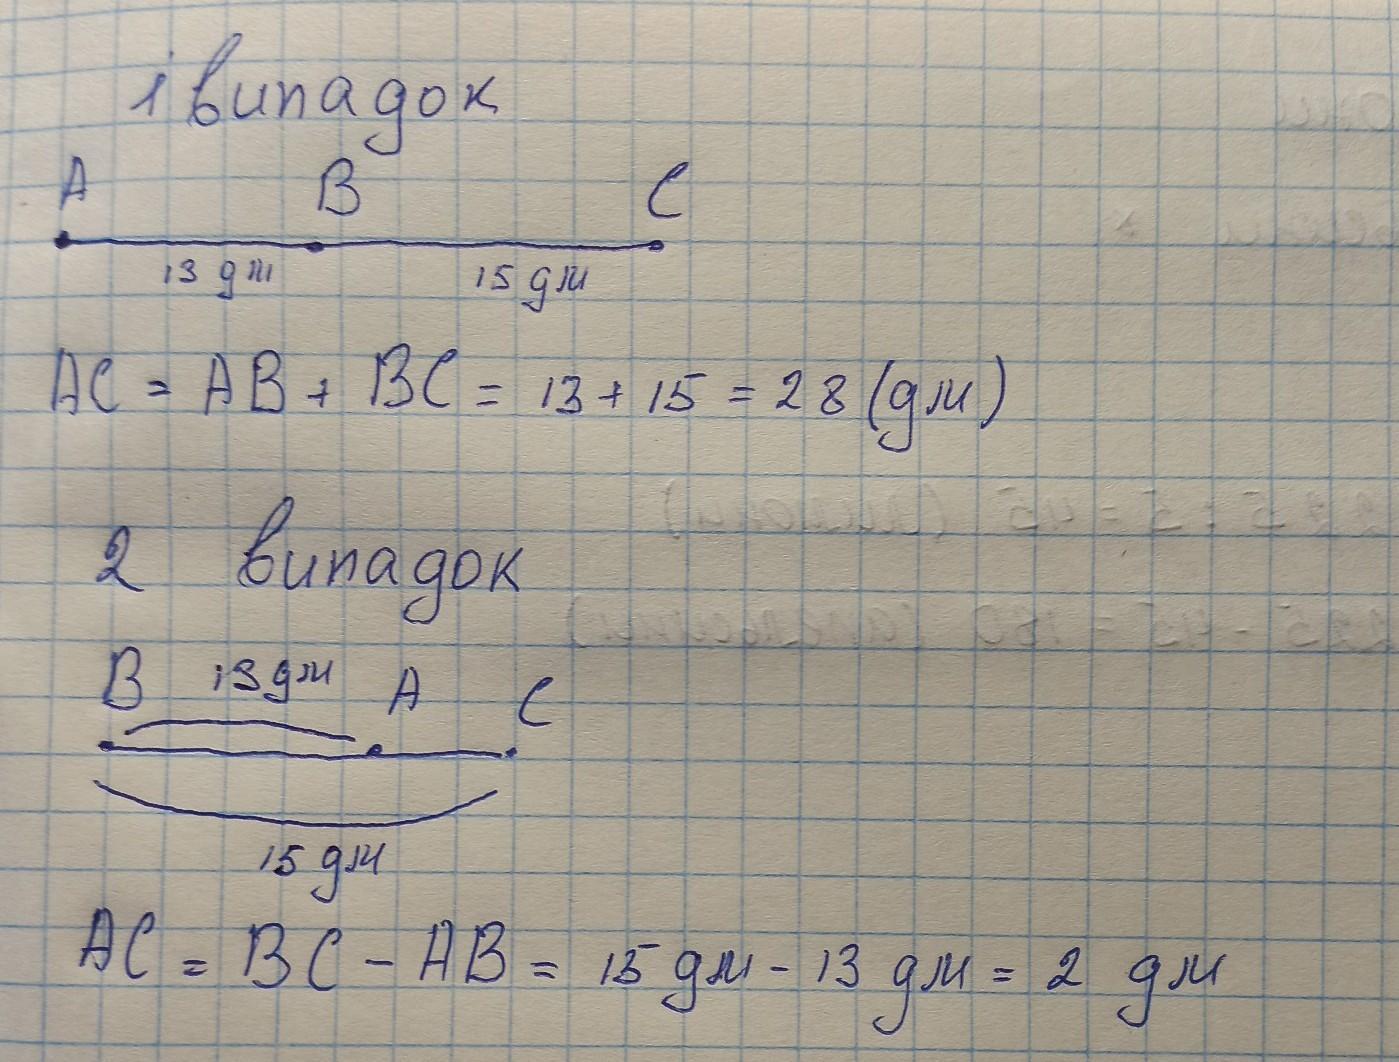 1 випадок
A B C
13 дм 15 дм
AC = AB + BC = 13 + 15 = 28 (дм)
2 випадок
B 13 дм A C
15 дм
AC = BC - AB = 15 дм - 13 дм = 2 дм